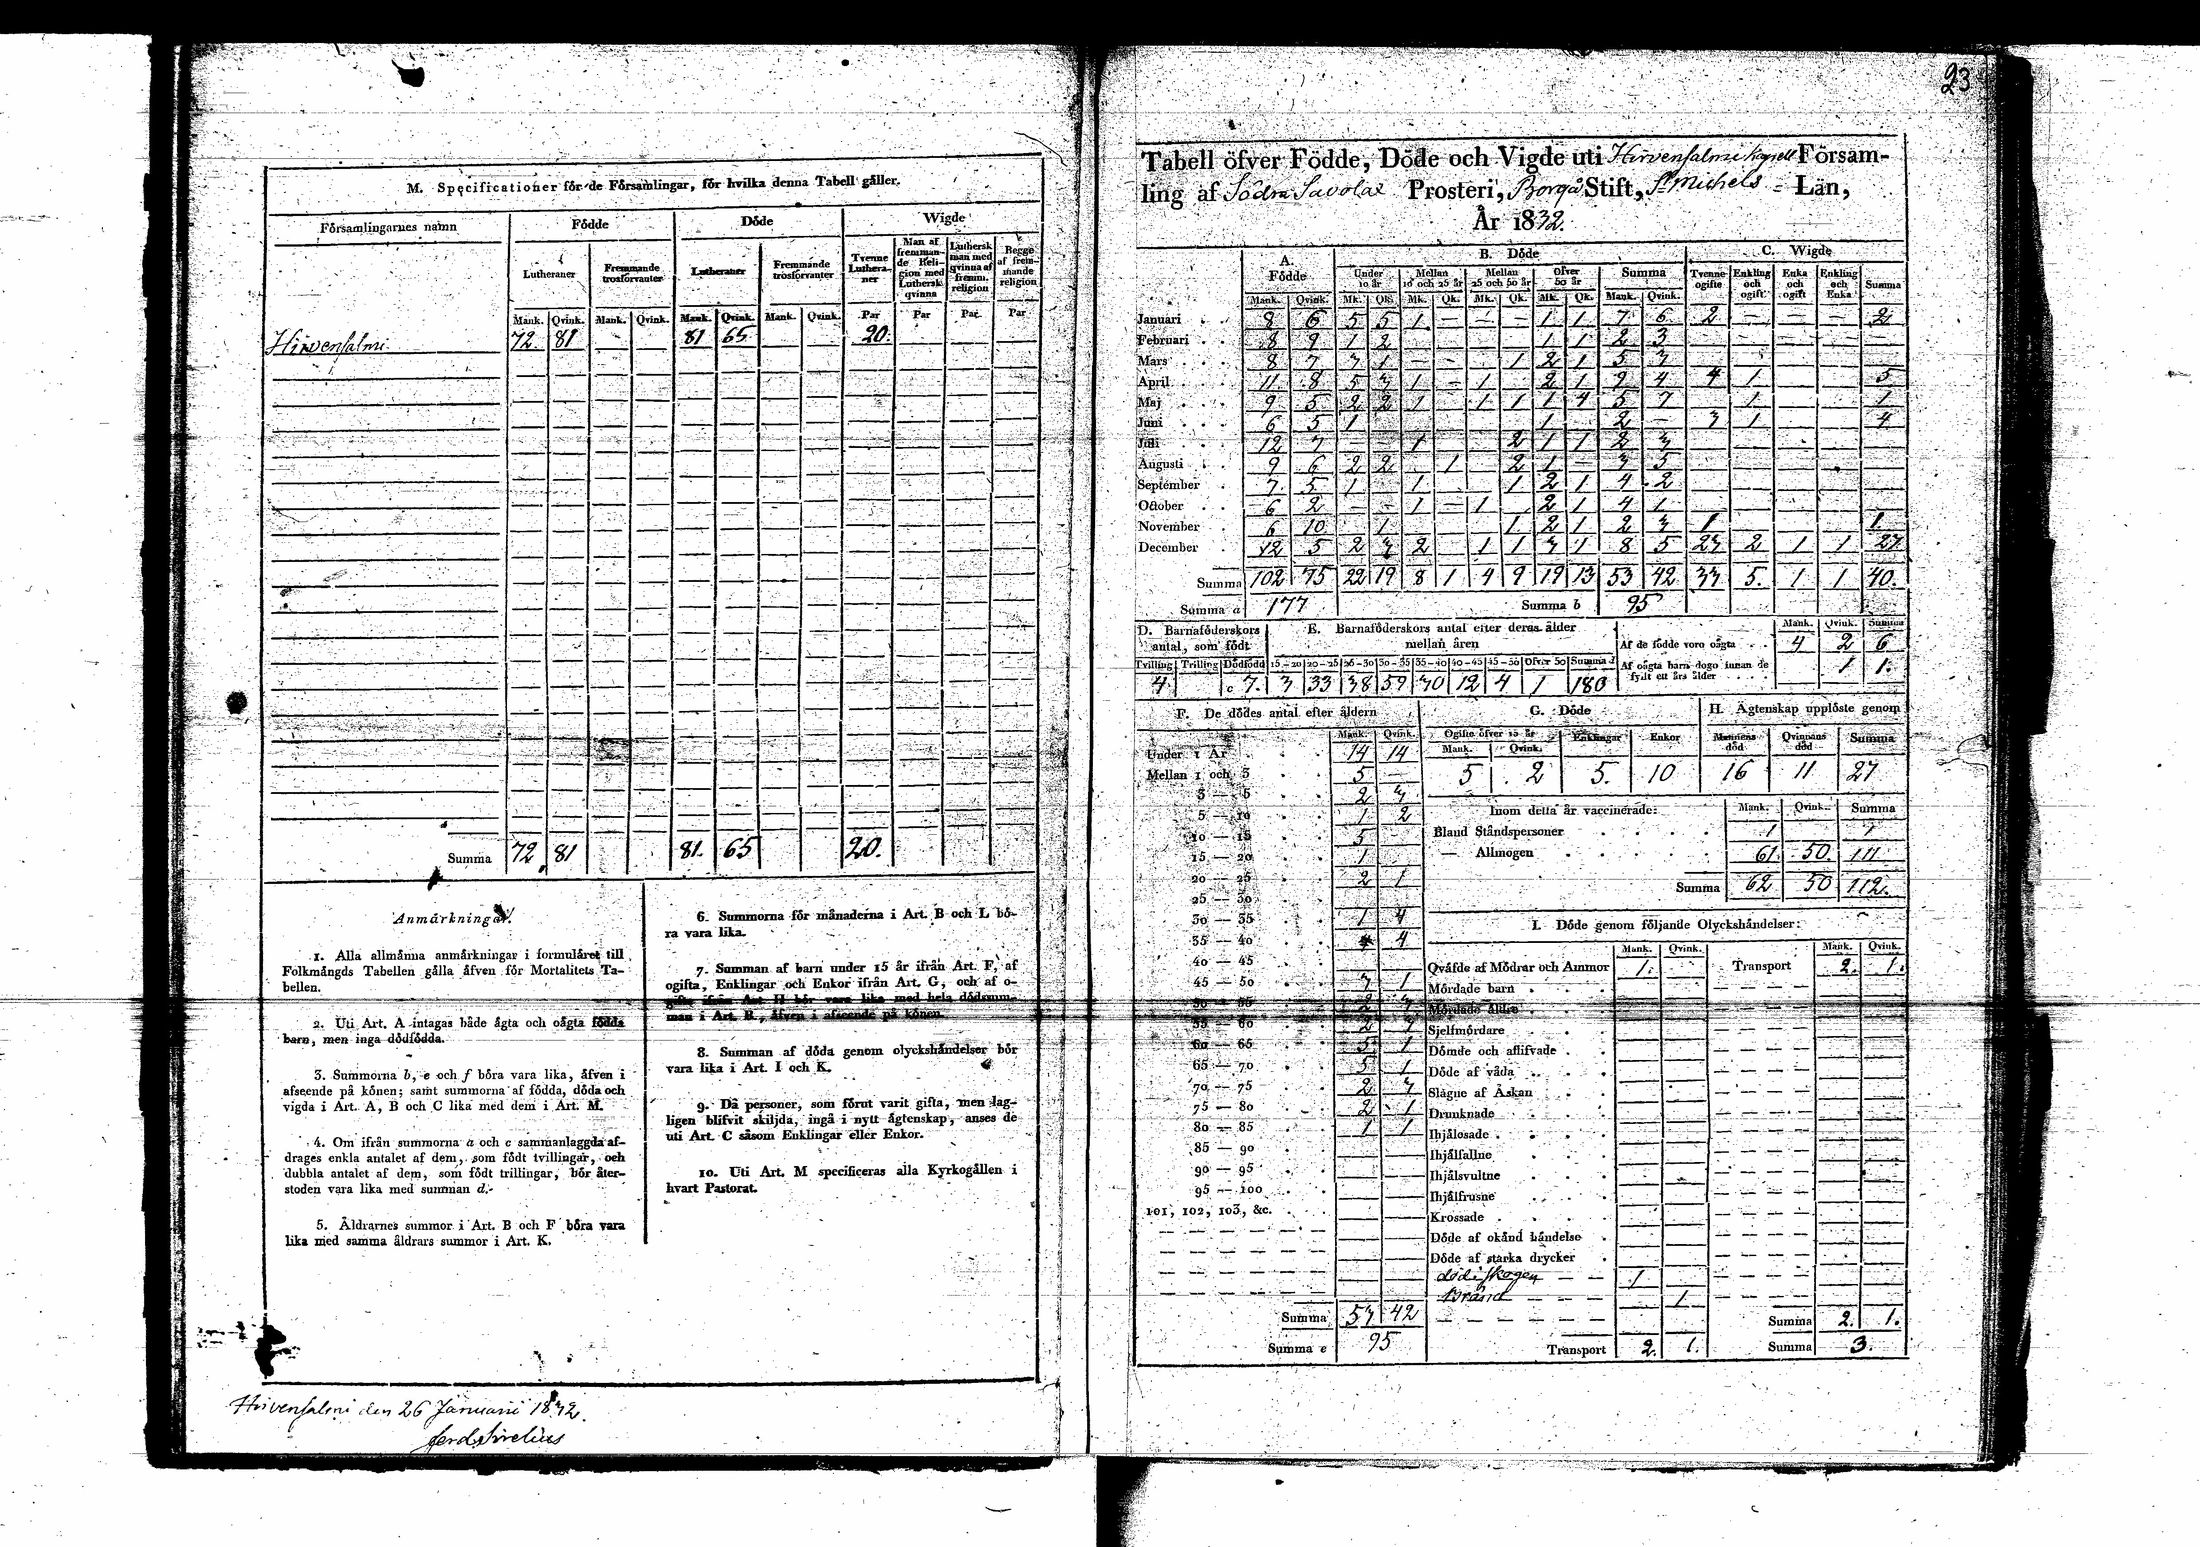 M. Specificationer för de Församlingar, för hvilka denna Tabell gäller.
Församlingarnes namn Födde Döde Wigde
Lutheraner Fremmande trosförvanter Lutheraner Fremmande trosförvanter Tvenne Lutheraner Man af fremmande Religion med Luthersk qvinna Luthersk man med qvinna af fremm. religion Begge af fremmande religion
Mank. Qvink. Mank. Qvink. Mank. Qvink. Mank. Qvink. Par Par Par Par
Hirvensalmi 72 81 81 65 20.
Summa 72 81 81. 65 20.
Anmärkningar.
1. Alla allmänna anmärkningar i formuläret till
Folkmängds Tabellen gälla äfven för Mortalitets Ta-
bellen.
2. Uti Art. A intagas både ägta och oägta födda
barn, men inga dödfödda.
3. Summorna b, e och f böra vara lika, äfven i
afseende på könen; samt summorna af födda, döda och
vigda i Art. A, B och C lika med dem i Art. M.
4. Om ifrån summorna a och c sammanlaggda af-
drages enkla antalet af dem, som födt tvillingar, och
dubbla antalet af dem, som födt trillingar, bör åter-
stoden vara lika med summan d.
5. Åldrarnes summor i Art. B och F böra vara
lika med samma åldrars summor i Art. K.
6. Summorna för månaderna i Art. B och L bö-
ra vara lika.
7. Summan af barn under 15 år ifrån Art. F, af
ogifta, Enklingar och Enkor ifrån Art. G, och af o-
gifta ifrån Art H bör vara lika med hela dödsum-
man i Art. B, äfven i afseende på könen.
8. Summan af döda genom olyckshändelser bör
vara lika i Art. I och K.
9. Då personer, som förut varit gifta, men lag-
ligen blifvit skiljda, ingå i nytt ägtenskap, anses de
uti Art. C såsom Enklingar eller Enkor.
10. Uti Art. M specificeras alla Kyrkogällen i
hvart Pastorat.
Hirvensalmi den 26 Januarii 1832.
Ferd. Sirelius
23
Tabell öfver Födde, Döde och Vigde uti Hirvensalmi Kapell Försam-
ling af Södra Savolax Prosteri, Borgå Stift, St Michels Län,
År 1832.
A. Födde B. Döde C. Wigde
Under 10 år Mellan 10 och 25 år Mellan 25 och 50 år Öfver 50 år Summa Tvenne ogifte Enkling och ogift Enka och ogift Enkling och Enka Summa
Mank. Qvink. Mk. Qk. Mk. Qk. Mk. Qk. Mk. Qk. Mank. Qvink.
Januari 8 6 5 5 1 — — — 1 1 7 6 2 — — — 2
Februari 8 9 1 2 1 1 2 3
Mars 8 7 3 1 — — — 1 2 1 5 3
April 11 8 5 3 1 — 1 2 1 9 4 4 1 5
Maj 9 5 2 2 1 1 1 1 4 5 7 1 1
Juni 6 5 1 1 2 — 3 1 4
Juli 12 7 — — 1 2 1 1 2 3
Augusti 9 6 2 2 1 2 1 — 3 5
September 7 5 1 1 1 2 1 4 2
October 6 2 — — 1 — 1 2 1 4 1
November 6 10 1 1 2 1 2 3 1 1
December 12 5 2 3 2 1 1 3 1 8 5 23 2 1 1 27
Summa 102 75 22 19 8 1 4 9 19 13 53 42 33 5. 1 1 40.
Summa a 177 Summa b 95
D. Barnaföderskors antal, som födt E. Barnaföderskors antal efter deras ålder mellan åren
Mank. Qvink. Summa
Tvilling Trilling Dödfödd 15—20 20—25 25—30 30—35 35—40 40—45 45—50 Öfver 50 Summa d
4. c 7. 3 33 38 59 30 12 4 1 180
Af de födde voro oägta 4 2 6
Af oägta barn dogo innan de fyllt ett års ålder 1 1.
F. De dödes antal efter åldern
Mank. Qvink.
Under 1 År 14 14
Mellan 1 och 3 5 —
3 — 5 2 3
5 — 10 1 2
10 — 15 5 —
15 — 20 1
20 — 25 2 1
25 — 30
30 — 35 1 4
35 — 40 4
40 — 45
45 — 50 3 1
50 — 55 2 3
55 — 60 2 3
60 — 65 5 1
65 — 70 5 1
70 — 75 2 3
75 — 80 2 1
80 — 85 1 1
85 — 90
90 — 95
95 — 100
101, 102, 103, &c.
Summa 53 42
Summa e 95
G. Döde
Ogifte öfver 15 år Enklingar Enkor
Mank. Qvink.
5 2 5. 10
H. Ägtenskap upplöste genom
Mannens död Qvinnans död Summa
16 11 27
Inom detta år vaccinerade: Mank. Qvink. Summa
Bland Ståndspersoner 1 1
— Allmogen 61. 50. 111
Summa 62 50 112.
I. Döde genom följande Olyckshändelser:
Mank. Qvink. Mank. Qvink.
Qväfde af Mödrar och Ammor 1. Transport 2. 1.
Mördade barn
Mördade äldre
Sjelfmördare
Dömde och aflifvade
Döde af våda
Slagne af Åskan
Drunknade
Ihjälosade
Ihjälfallne
Ihjälsvultne
Ihjälfrusne
Krossade
Döde af okänd händelse
Döde af starka drycker
död i skogen 1
Bränd 1
Summa 2. 1.
Transport 2. 1. Summa 3.